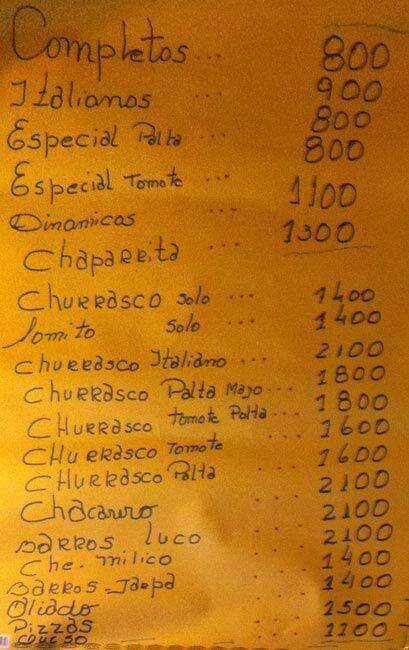 Completos ... 800
Italianos ... 900
Especial Palta ... 800
Especial Tomate ... 800
Dinamicos ... 1100
Chaparrita ... 1300
Churrasco solo ... 1400
Lomito solo ... 1400
Churrasco Italiano ... 2100
Churrasco Palta Mayo ... 1800
Churrasco tomate Palta ... 1800
Churrasco Tomate ... 1600
Churrasco Palta ... 1600
Chacarero ... 2100
Barros Luco ... 2100
Che-milico ... 2100
Barros-Jarpa ... 1400
Aliado ... 1400
Pizzas ... 1500
Queso ... 1100